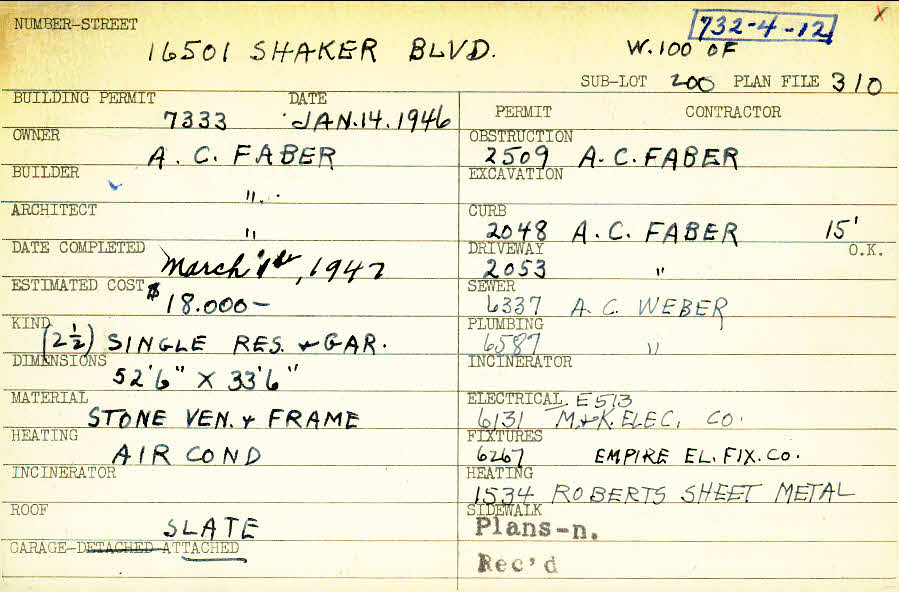 NUMBER-STREET 732-4-12 x
16501 SHAKER BLVD. W.100 OF
SUB-LOT 200 PLAN FILE 310
BUILDING PERMIT DATE
7333 JAN.14.1946
OWNER
A. C. FABER
BUILDER
".
ARCHITECT
"
DATE COMPLETED
March 1st, 1947
ESTIMATED COST
$18.000-
KIND
(2 1/2) SINGLE RES. & GAR.
DIMENSIONS
52'6" X 33'6"
MATERIAL
STONE VEN. & FRAME
HEATING
AIR COND
INCINERATOR
ROOF
SLATE
GARAGE-DETACHED-ATTACHED
PERMIT CONTRACTOR
OBSTRUCTION
2509 A.C. FABER
EXCAVATION
CURB
2048 A.C. FABER 15'
DRIVEWAY O.K.
2053 "
SEWER
6337 A.C. WEBER
PLUMBING
6587 "
INCINERATOR
ELECTRICAL. E573
6131 M.&K. ELEC. CO.
FIXTURES
6267 EMPIRE EL. FIX. CO.
HEATING
1534 ROBERTS SHEET METAL
SIDEWALK
Plans-n.
Rec'd